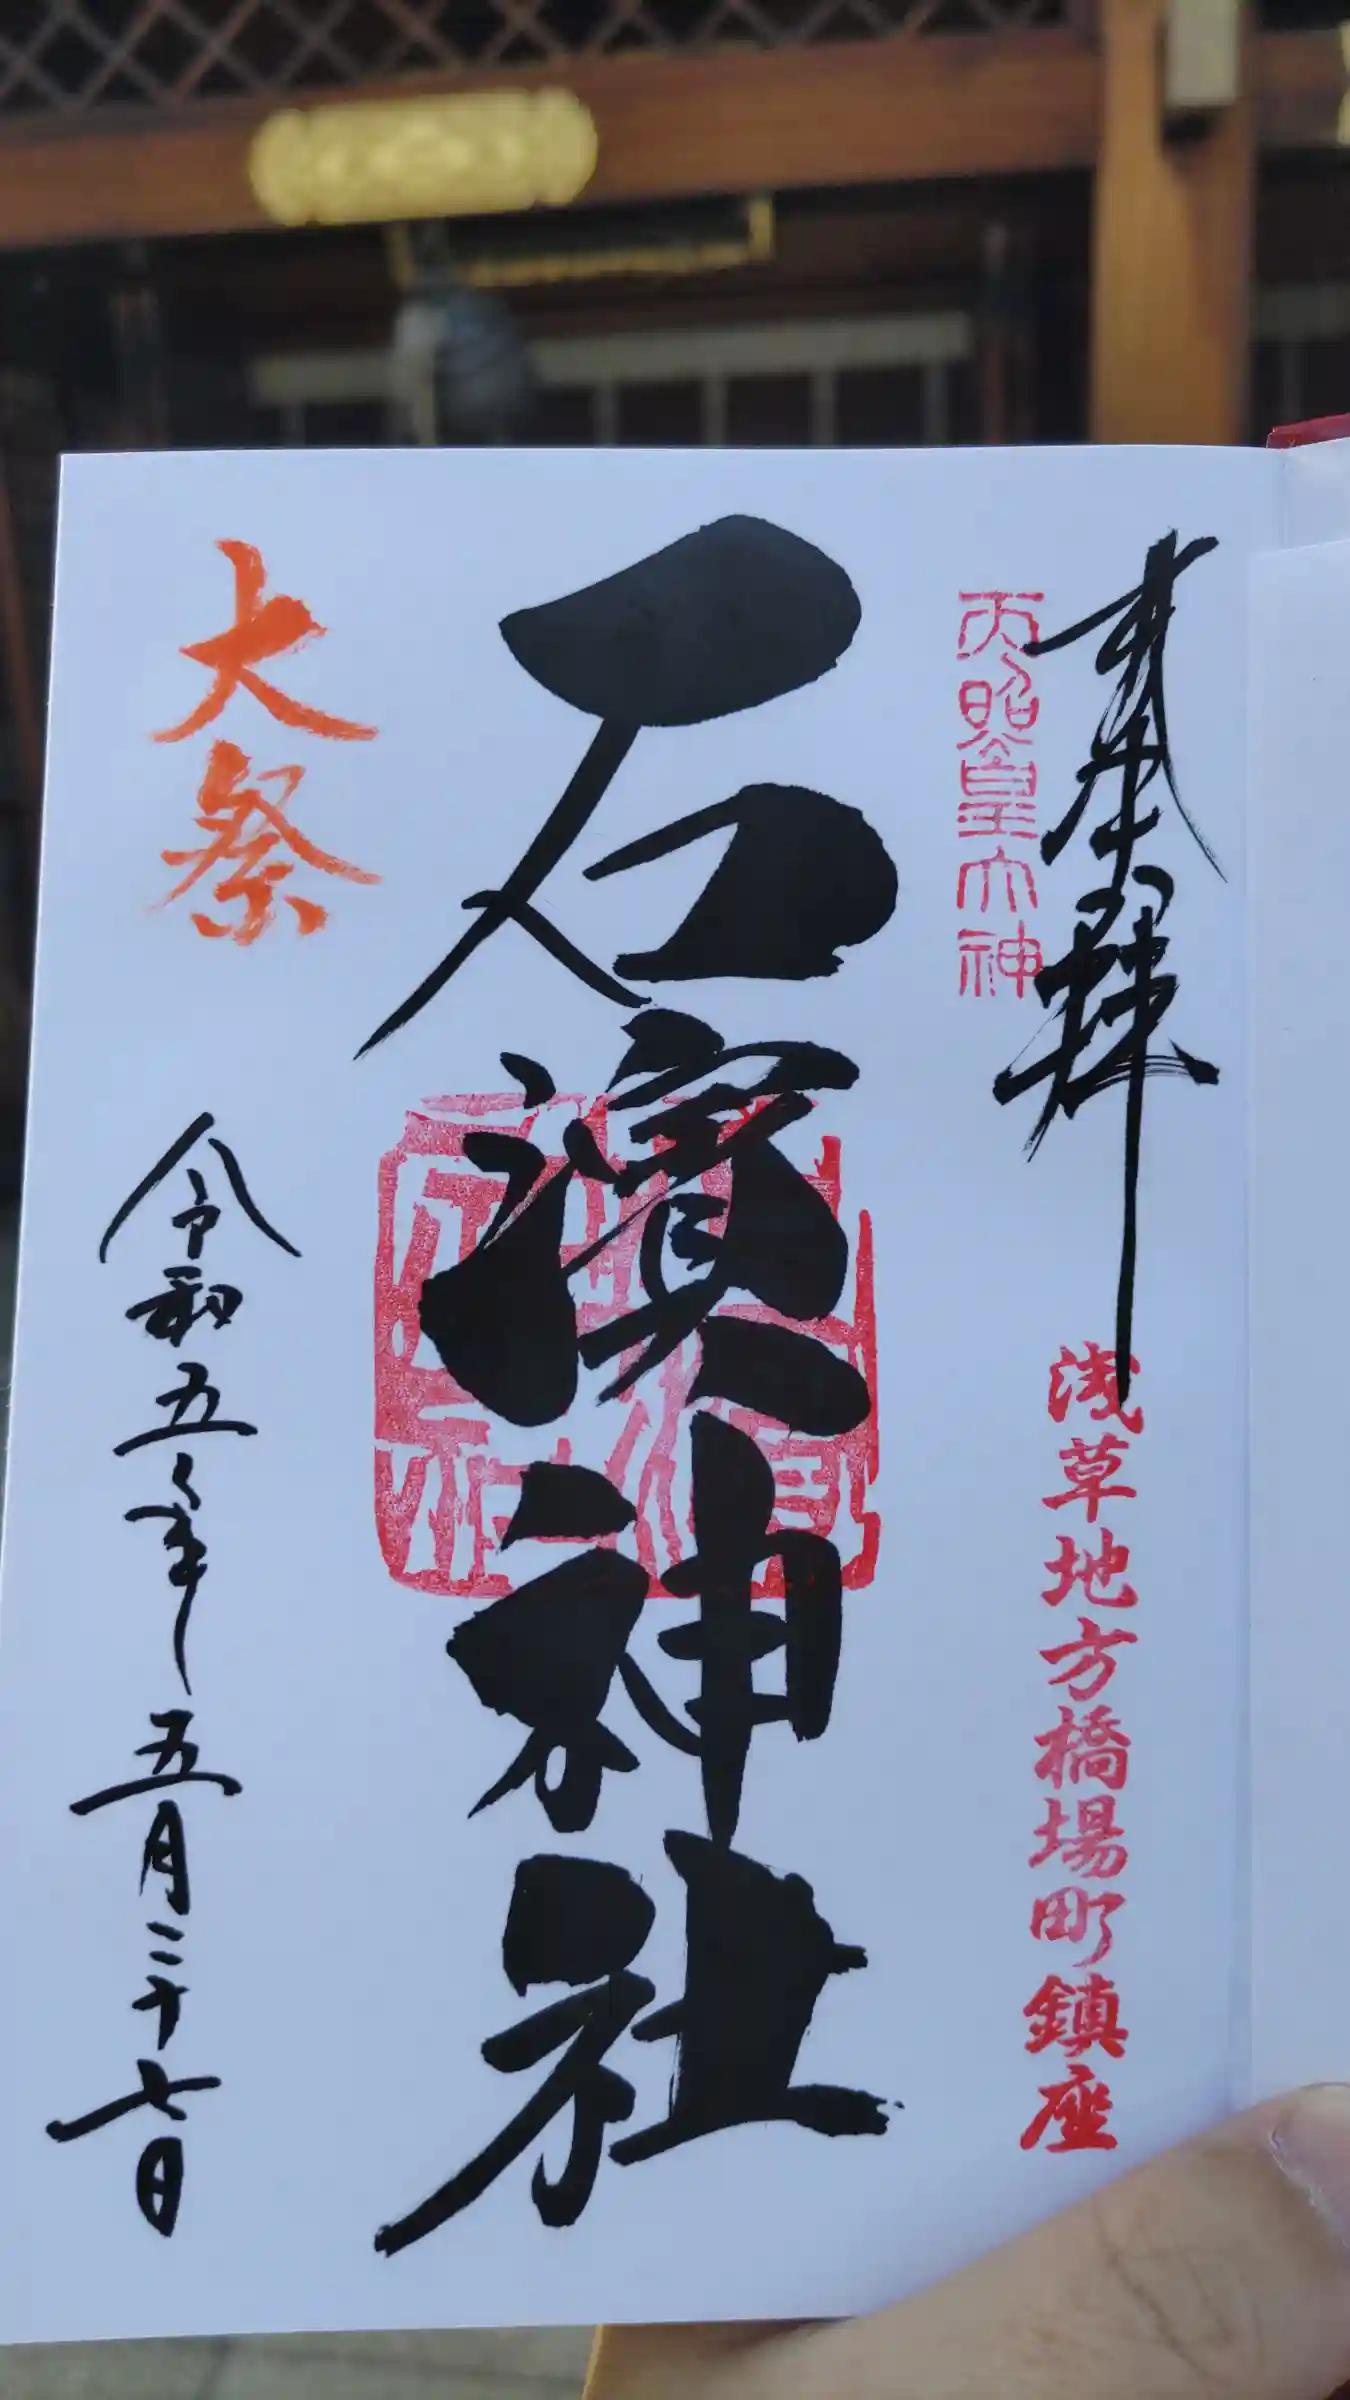 奉拜
天照皇大神
浅草地方橋場町鎮座
石濱神社
大祭
令和五年五月二十七日